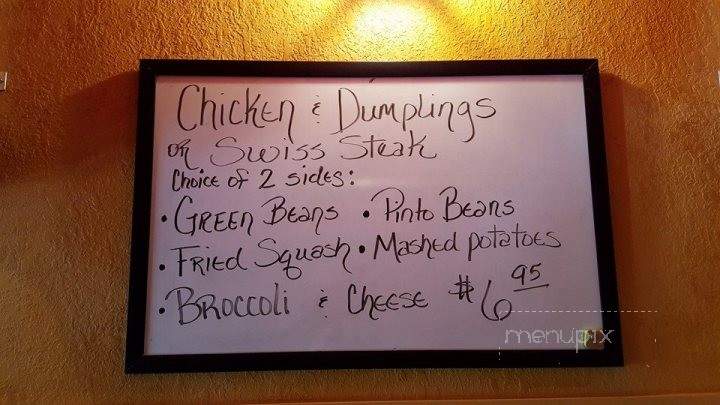 Chicken & Dumplings
OR Swiss Steak
Choice of 2 sides:
• GREEN BEANS • Pinto BEANS
• FRIED Squash • MASHED potatoes
• BROCCOLI & CHEESE $6.95
menupix